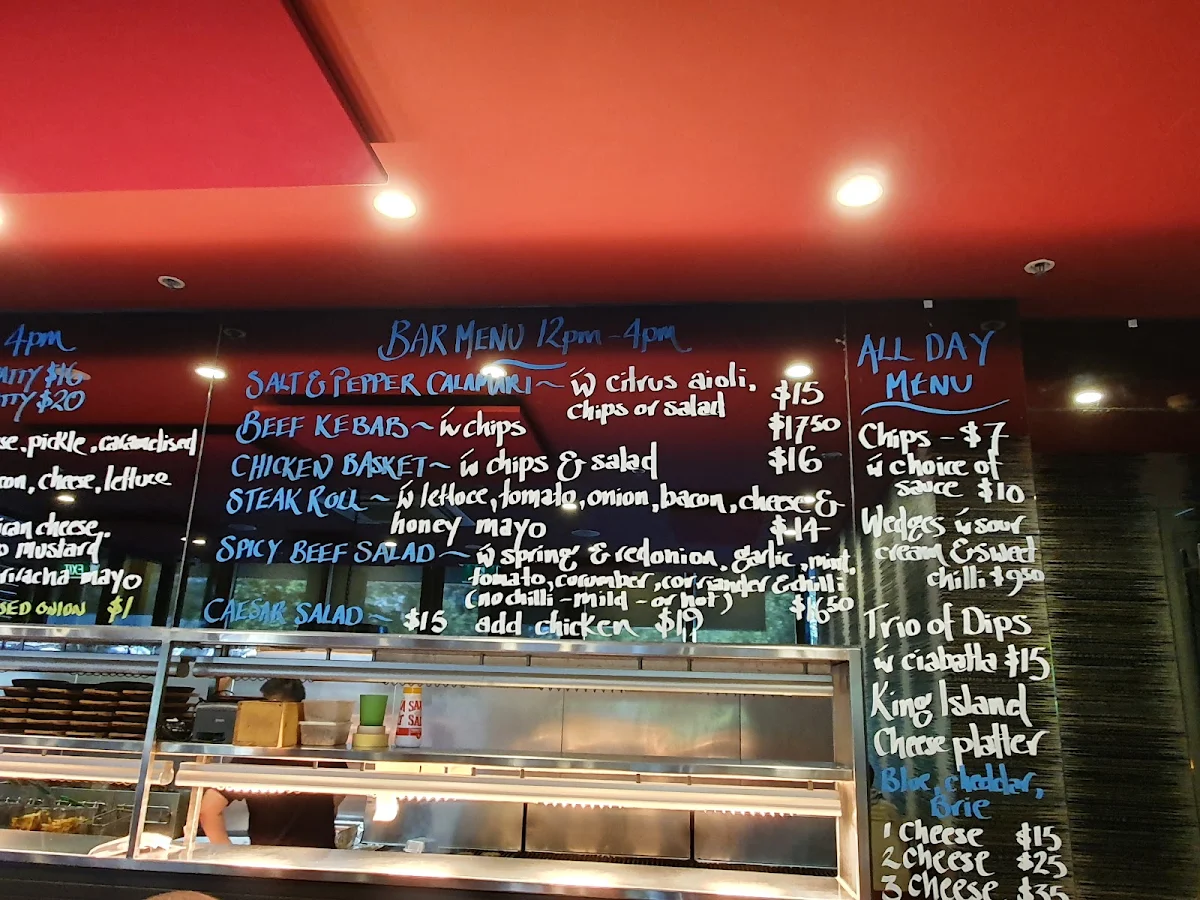 4pm
ATTY $16
TTY $20
se, pickle, caramelised
con, cheese, lettuce
ican cheese.
o mustard
riracha mayo
SED ONION $1
BAR MENU 12pm - 4pm
SALT & PEPPER CALAMARI ~ w citrus aioli,
chips or salad $15
BEEF KEBAB ~ w chips $17 50
CHICKEN BASKET ~ w chips & salad $16
STEAK ROLL ~ w lettoce, tomato, onion, bacon, cheese &
honey mayo $14
SPICY BEEF SALAD ~ w spring & red onion, garlic, mint,
tomato, corumber, corriander & chilli
(no chilli - mild - or hot) $16 50
CAESAR SALAD ~ $15 add chicken $19
ALL DAY
MENU
Chips - $7
w choice of
sauce $10
Wedges w sour
cream & sweet
chilli $9 50
Trio of Dips
w ciabatta $15
King Island
Cheese platter
Blue, cheddar,
Brie
1 Cheese $15
2 cheese $25
3 cheese $35